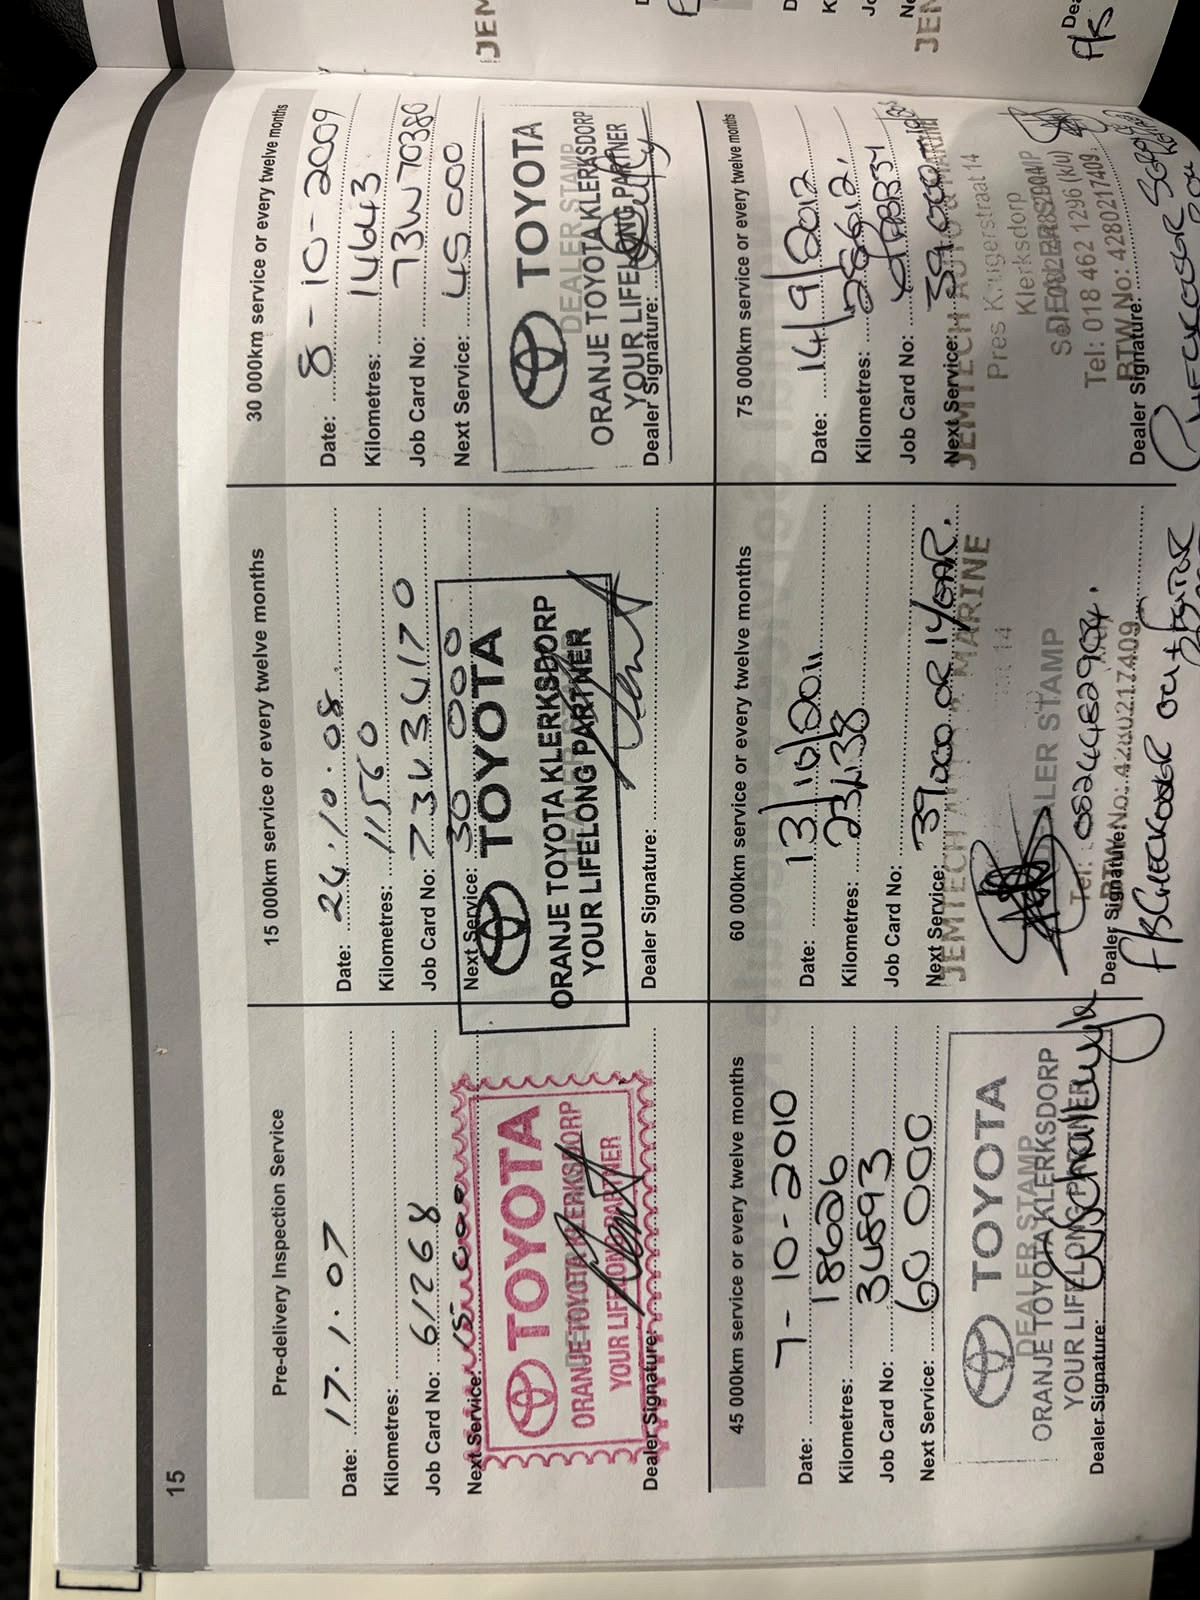 15
Pre-delivery Inspection Service
Date: 17.1.07
Kilometres:
Job Card No: 61268
Next Service: 15 000
TOYOTA
ORANJE TOYOTA KLERKSDORP
YOUR LIFELONG PARTNER
Dealer Signature:
15 000km service or every twelve months
Date: 24.10.08
Kilometres: 11560
Job Card No: 73V34170
Next Service: 30 000
TOYOTA
ORANJE TOYOTA KLERKSDORP
YOUR LIFELONG PARTNER
Dealer Signature:
30 000km service or every twelve months
Date: 8-10-2009
Kilometres: 14643
Job Card No: 73W70380
Next Service: 45 000
TOYOTA
DEALER STAMP
ORANJE TOYOTA KLERKSDORP
YOUR LIFELONG PARTNER
Dealer Signature:
45 000km service or every twelve months
Date: 7-10-2010
Kilometres: 18626
Job Card No: 34893
Next Service: 60 000
TOYOTA
DEALER STAMP
ORANJE TOYOTA KLERKSDORP
YOUR LIFELONG PARTNER
Dealer Signature:
60 000km service or every twelve months
Date: 13/10/2011
Kilometres: 23438
Job Card No:
Next Service: 39000 OR 1 YEAR.
JEMTECH MARINE
14
DEALER STAMP
Tel: 0824482904.
BTW No: 4280217409
Dealer Signature:
75 000km service or every twelve months
Date: 14/9/2012
Kilometres: 28612
Job Card No:
Next Service: 39000
JEMTECH AUTO & MARINE
Pres Krugerstraat 14
Klerksdorp
DEALER STAMP
Tel: 018 462 1296 (k/u)
BTW No: 4280217409
Dealer Signature:
JEM
JEM